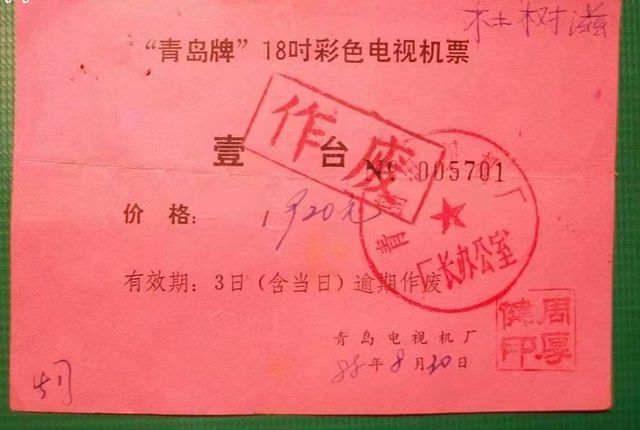 杜树滋
“青岛牌”18吋彩色电视机票
作废
壹 台 №005701
价格: 1920元
青岛电视机厂
厂长办公室
有效期: 3日(含当日)逾期作废
周厚健印
青岛电视机厂
88年8月30日